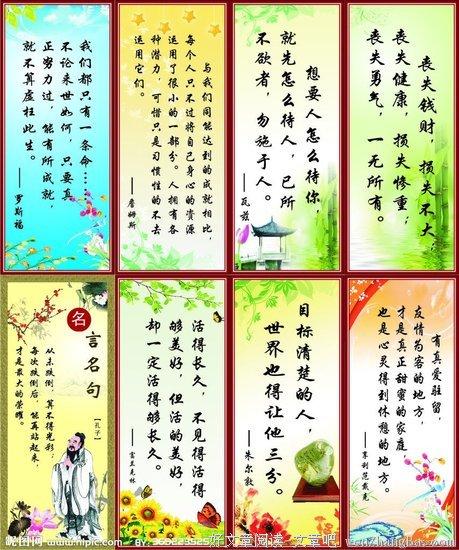 我们都只有一条命…
不论来世如何，只要真
正努力过，能有所成就，
就不算虚枉此生。
——罗斯福
与我们同能达到的成就相比，
每个人只不过将自己身心的资源
运用了很小的一部分。人拥有各
种潜力，可惜只是习惯性的不去
运用它们。
——詹姆斯
想要人怎么待你，
就先怎么待人，已所
不欲者，勿施于人。
——瓦兹
丧失钱财，损失不大；
丧失健康，损失惨重；
丧失勇气，一无所有。
名言名句
从未跌倒，算不得光彩；
每次跌倒后，能再站起来，
才是最大的荣耀。
【孔子】
活得长久，不见得活得
够美好，但活的美好，
却一定活得够长久。
——富兰克林
目标清楚的人，
世界也得让他三分。
——朱尔敦
有真爱驻留，
友情为客的地方，
才是真正甜蜜的家庭，
也是心灵得到休憩的地方。
——亨利范戴克
昵图网 www.nipic.com
好文章阅读-文章吧